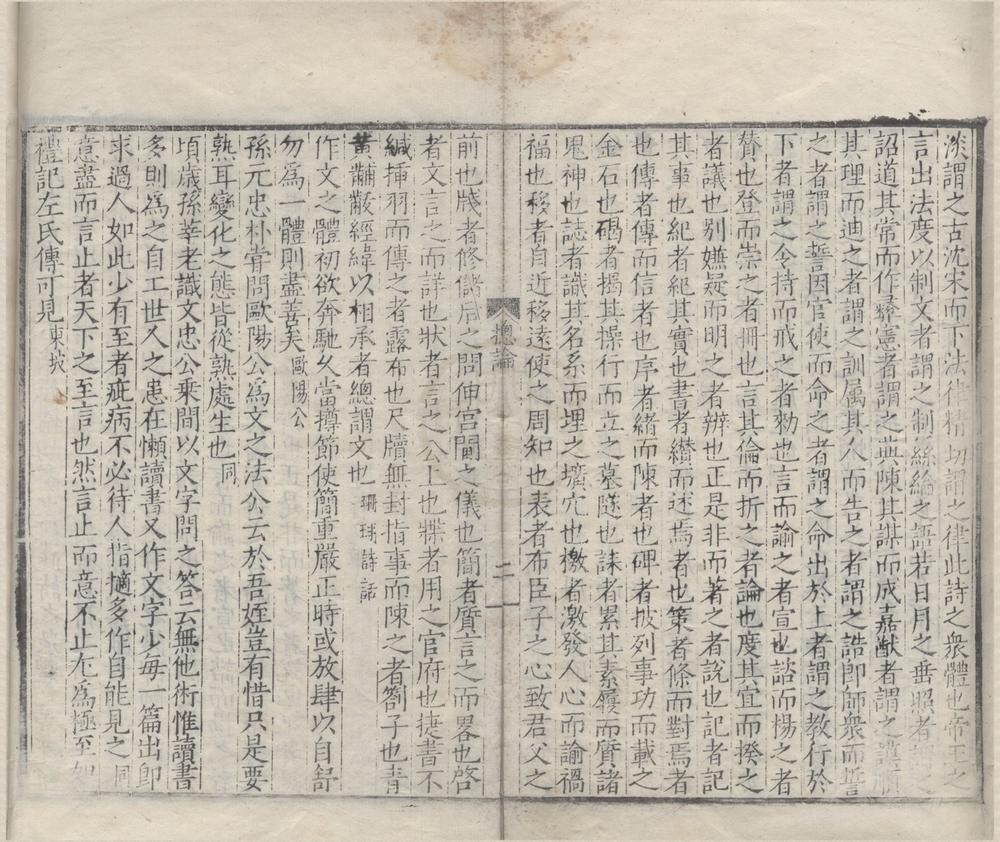 淡謂之古沈宋而下法律精切謂之律此詩之衆體也帝王之
言出法度以制文者謂之制絲綸之語若日月之垂照者
詔道其常而作彝憲者謂之典陳其謀而成嘉猷者謂之謨順
其理而迪之者謂之訓属其人而告之者謂之誥即師衆而誓
之者謂之誓因官使而命之者謂之命出於上者謂之教行於
下者謂之令持而戒之者勑也言而諭之者宣也諮而揚之者
賛也登而崇之者冊也言其倫而折之者論也度其宜而揆之
者議也别嫌疑而明之者辨也正是非而著之者說也記者記
其事也紀者紀其實也書者纉而述焉者也策者條而對焉者
也傳者傳而信者也序者緒而陳者也碑者披列事功而載之
金石也碣者揭其操行而立之墓隧也誄者累其素履而質諸
鬼神也誌者識其名系而埋之壙穴也檄者激發人心而諭禍
福也移者自近移遠使之周知也表者布臣子之心致君父之
總論
二
前也牋者修儲后之問伸宮閫之儀也簡者質言之而畧也啓
者文言之而詳也狀者言之公上也牒者用之官府也捷書不
緘揷羽而傳之者露布也尺牘無封指事而陳之者劄子也青
黄黼黻經緯以相承者總謂文也珊瑚詩話
作文之體初欲奔馳久當撙節使簡重嚴正時或放肆以自舒
勿爲一體則盡善矣歐陽公
孫元忠朴甞問歐陽公爲文之法公云於吾姪豈有惜只是要
熟耳變化之態皆從熟處生也同
頃歲孫莘老識文忠公乘間以文字問之答云無他術惟讀書
多則爲之自工世人之患在懶讀書又作文字少每一篇出即
求過人如此少有至者疵病不必待人指擿多作自能見之同
意盡而言止者天下之至言也然言止而意不止尤爲極至如
禮記左氏傳可見東坡